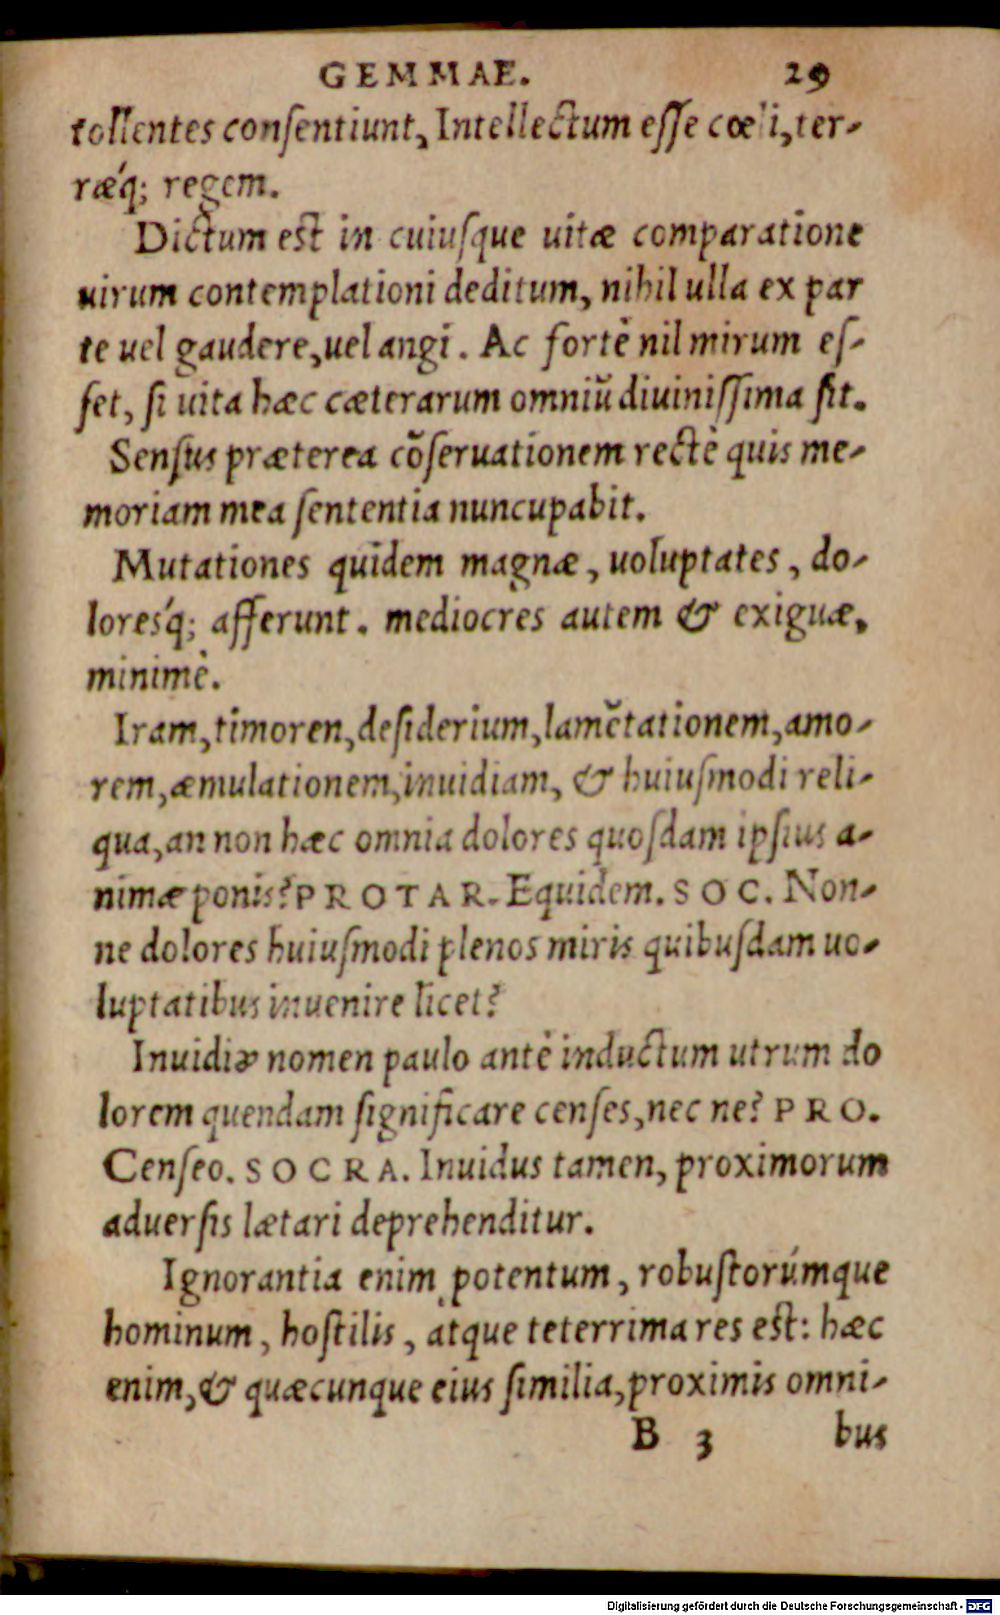 GEMMAE. 29
tollentes conſentiunt, Intellectum eſſe cœli, ter-
ræq́; regem.
Dictum est in cuiuſque uitæ comparatione
uirum contemplationi deditum, nihil ulla ex par
te uel gaudere, uel angi. Ac fortè nil mirum eſ-
ſet, ſi uita hæc cæterarum omniũ diuiniſſima ſit.
Senſus præterea cõſeruationem rectè quis me-
moriam mea ſententia nuncupabit.
Mutationes quidem magnæ, uoluptates, do-
loresq́; afferunt. mediocres autem & exiguæ,
minimè.
Iram, timoren, deſiderium, lamẽtationem, amo-
rem, æmulationem, inuidiam, & huiuſmodi reli-
qua, an non hæc omnia dolores quoſdam ipſius a-
nimæ ponis? PROTAR. Equidem. SOC. Non-
ne dolores huiuſmodi plenos miris quibuſdam uo-
luptatibus inuenire licet?
Inuidiæ nomen paulo antè inductum utrum do
lorem quendam ſignificare cenſes, nec ne? PRO.
Cenſeo. SOCRA. Inuidus tamen, proximorum
aduerſis lætari deprehenditur.
Ignorantia enim potentum, robuſtorúmque
hominum, hoſtilis, atque teterrima res est: hæc
enim, & quæcunque eius ſimilia, proximis omni-
B 3 bus
Digitalisierung gefördert durch die Deutsche Forschungsgemeinschaft - DFG